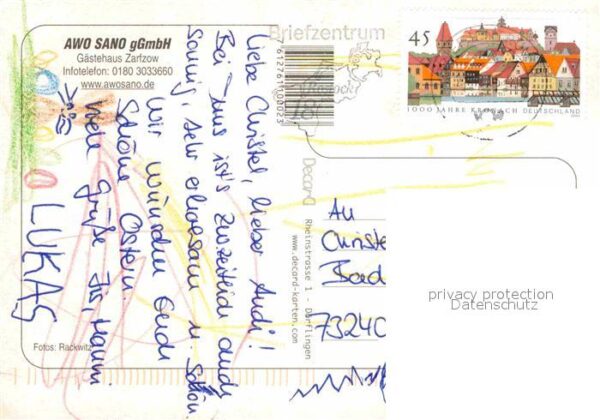 AWO SANO gGmbH
Gästehaus Zarfzow
Infotelefon: 0180 3033660
www.awosano.de
Liebe Christel, lieber Andi!
Bei uns ist's zurzeit auch
sonnig, sehr erholsam u. schön.
Wir wünschen Euch
Schöne Ostern.
Viele Grüße Iris, Mauni
LUKAS
Fotos: Rackwitz
Briefzentrum
18
Rostock
Decard
Rheinstrasse 1 - Dörflingen
www.decard-karten.com
45
1000 JAHRE KRONACH DEUTSCHLAND
An
Christe
Bad
73240
privacy protection
Datenschutz